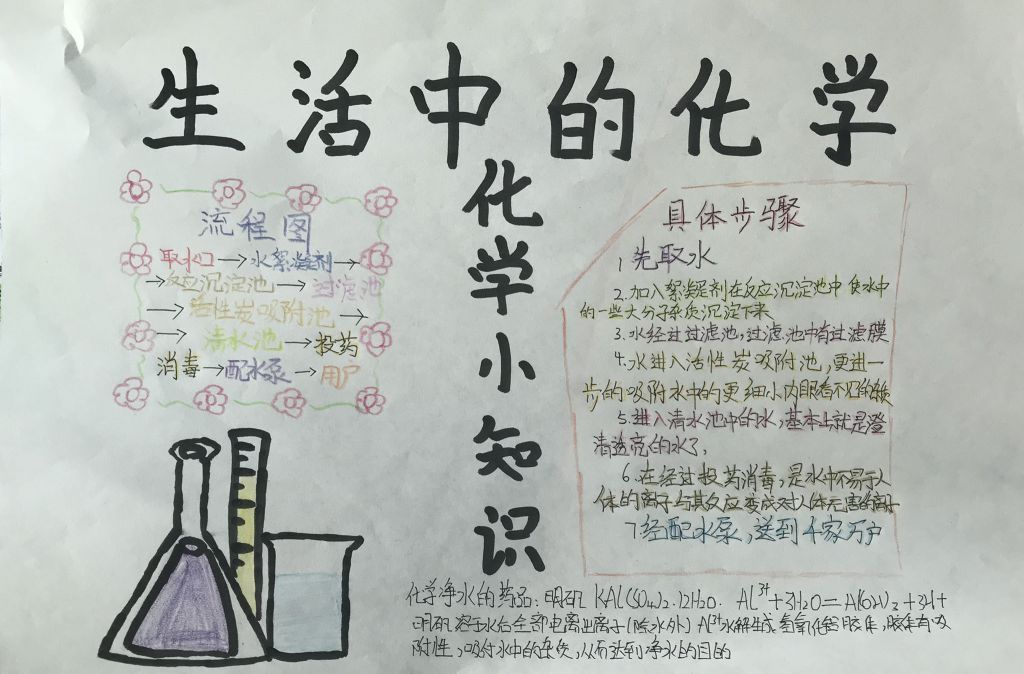 生活中的化学
化学小知识
流程图
取水口→水絮凝剂→
→反应沉淀池→过滤池
→活性炭吸附池→
→清水池→投药
消毒→配水泵→用户
具体步骤
1 先取水
2.加入絮凝剂在反应沉淀池中使水中
的一些大分子杂质沉淀下来
3.水经过过滤池,过滤池中有过滤膜
4.水进入活性炭吸附池,更进一
步的吸附水中的更细小肉眼看不见的
5.进入清水池中的水,基本上就是澄
清透亮的水了,
6.在经过投药消毒,是水中不易于人
体的离子与其反应变成对人体无害的离子
7.经配水泵,送到千家万户
化学净水的药品:明矾 KAl(SO4)2·12H2O. Al³⁺+3H2O=Al(OH)3+3H+
明矾溶于水后全部电离出离子(除水外)Al³⁺水解生成氢氧化铝胶体,胶体有吸
附性,吸附水中的杂质,从而达到净水的目的